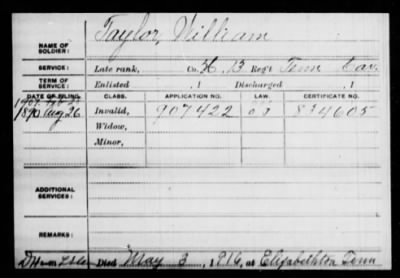 NAME OF SOLDIER: Taylor, William
SERVICE: Late rank, Co. H, 13 Reg't Tenn Cav.
TERM OF SERVICE: Enlisted , 1 Discharged , 1
DATE OF FILING. CLASS. APPLICATION NO. LAW. CERTIFICATE NO.
1890 Aug 26 Invalid, 907422 834605
Widow,
Minor,
ADDITIONAL SERVICES:
REMARKS:
Died May 3, 1916, at Elizabethton Tenn